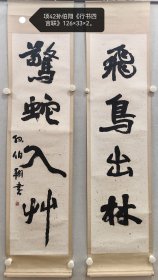 项42孙伯翔《行书四
言联》126×33×2。
飛鳥出林
驚蛇入艸
孙伯翔书